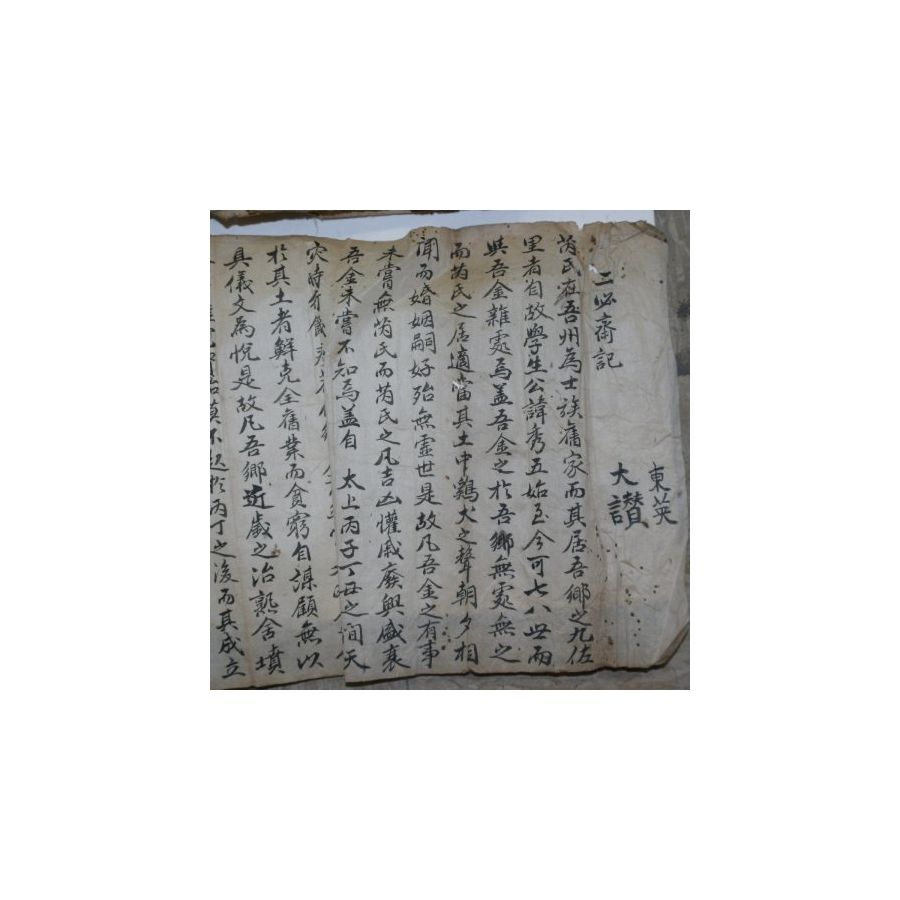 東英
大讃
二必齋記
芮氏在吾州為士族舊家而其居吾鄉之九佐
里者自故學生公諱秀五始至今可七八世而
與吾金雜處焉盖吾金之於吾鄉無處無之
而芮氏之居適當其土中鷄犬之聲朝夕相
聞而婚姻嗣好殆無虛世是故凡吾金之有事
未嘗無芮氏而芮氏之凡吉凶懽戚廢興盛衰
吾金未嘗不知焉盖自 太上丙子丁丑之間天
灾時行饑
於其土者鮮克全舊業而貪窮自謀顧無以
具儀文為悅是故凡吾鄉近歲之治塾舍墳
莫不起於丙丁之後而其成立